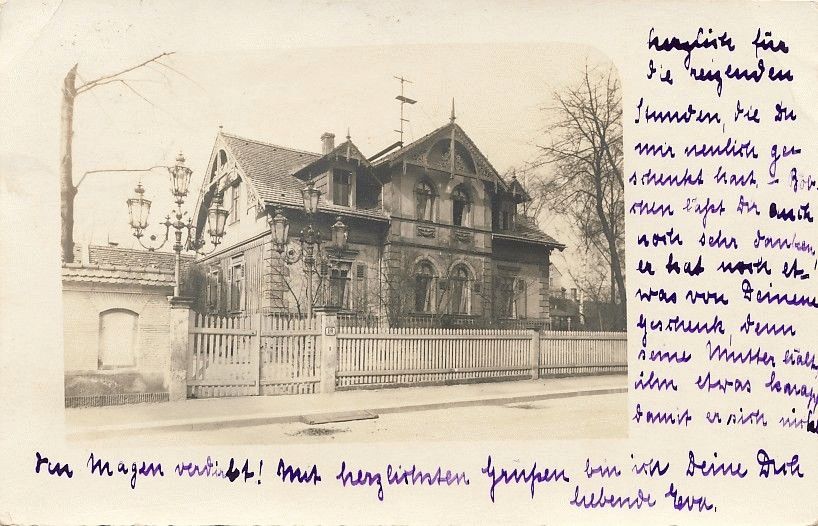 herzlich für
die reizenden
Stunden, die Du
mir neulich ge-
schenkt hast. – Büb-
chen läßt Dir auch
noch sehr danken,
er hat noch et-
was von Deinem
Geschenk, denn
seine Mutter hält
ihn etwas knapp
damit er sich nicht
den Magen verdirbt! Mit herzlichsten Grüßen bin ich Deine Dich
liebende Eva.